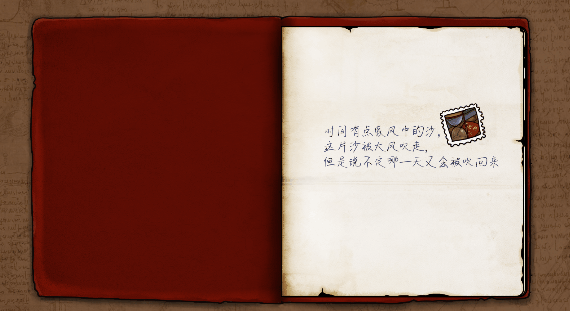 时间有点像风中的沙，
这片沙被大风吹走，
但是说不定那一天又会被吹回来